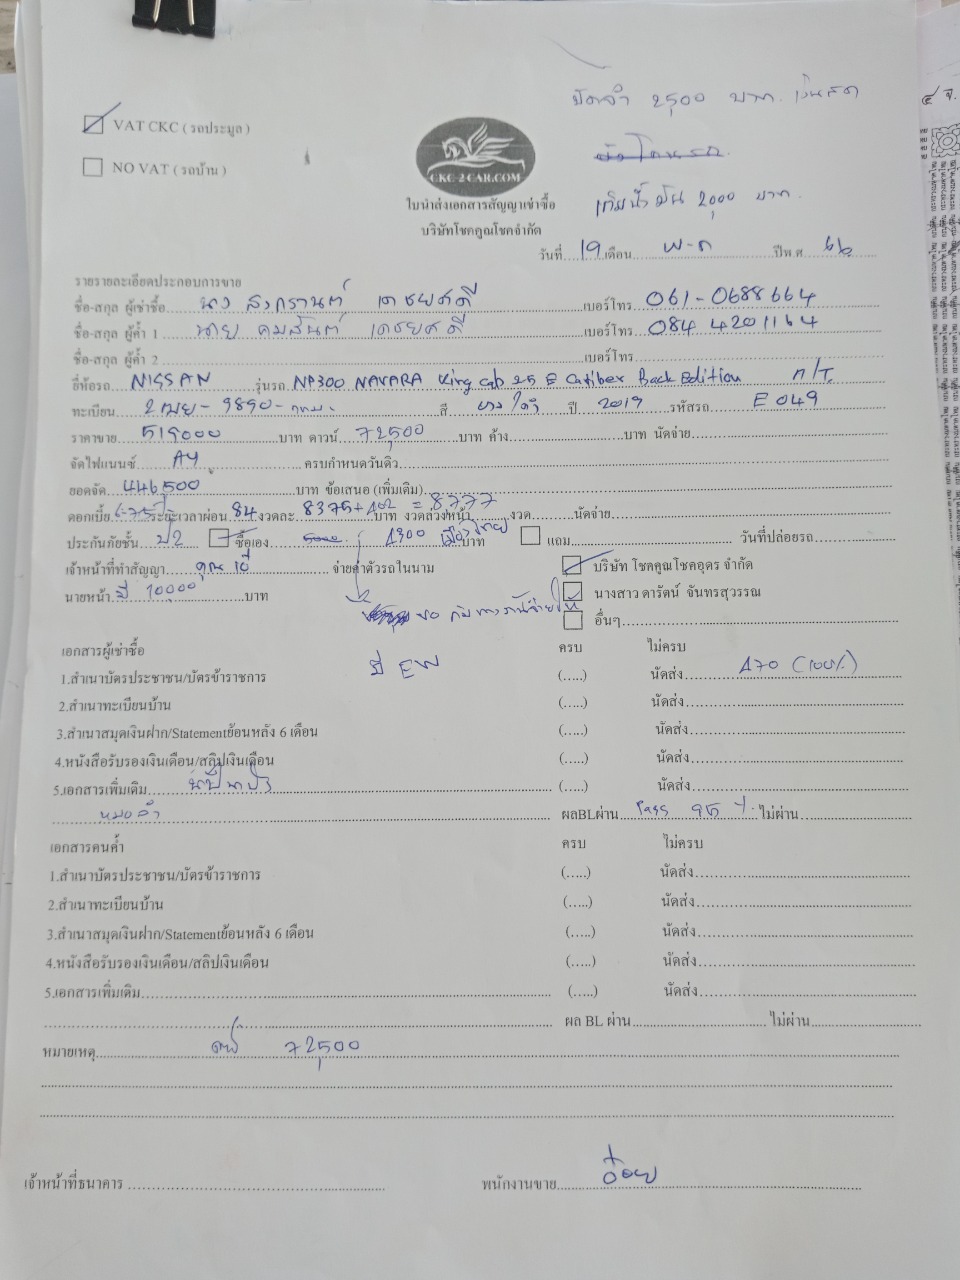 มัดจำ 2,500 บาท. เงินสด
VAT CKC ( รถประมูล )
NO VAT ( รถบ้าน )
CKC-2CAR.COM
เติมน้ำมัน 2,000 บาท.
ใบนำส่งเอกสารสัญญาเช่าซื้อ
บริษัทโชคคูณโชคจำกัด
วันที่....19..เดือน.....พ-ค.....ปีพ.ศ....66
รายรายละเอียดประกอบการขาย
ชื่อ-สกุล ผู้เช่าซื้อ.....นาง สงกรานต์ เดชยศดี.....เบอร์โทร..061-0688664
ชื่อ-สกุล ผู้ค้ำ 1.....นาย คมสันต์ เดชยศดี.....เบอร์โทร..084 4201164
ชื่อ-สกุล ผู้ค้ำ 2.....เบอร์โทร.....
ยี่ห้อรถ...NISSAN...รุ่นรถ..NP300 NAVARA King Cab 2.5 E Caliber Back Edition M/T.
ทะเบียน.....9890-.....สี.....ปี...2019...รหัสรถ...E 049
ราคาขาย...519000.....บาท ดาวน์..72,500....บาท ค้าง.....บาท นัดจ่าย.....
จัดไฟแนนซ์.....AY.....ครบกำหนดวันคิว.....
ยอดจัด..446,500.....บาท ข้อเสนอ (เพิ่มเติม).....
ดอกเบี้ย..6.75..ระยะเวลาผ่อน..84..งวดละ..8375+402 = 8777..บาท งวดล่วงหน้า.....งวด.....นัดจ่าย.....
ประกันภัยชั้น...ป2.... ซื้อเอง.....1300 เมืองไทย..บาท แถม..... วันที่ปล่อยรถ.....
เจ้าหน้าที่ทำสัญญา.....คุณ.....จ่ายค่าตัวรถในนาม บริษัท โชคคูณโชคอุดร จำกัด
นายหน้า.มี 10,000.....บาท นางสาว ดารัตน์ จันทรสุวรรณ
อื่นๆ.....
เอกสารผู้เช่าซื้อ ครบ ไม่ครบ
มี EW
1.สำเนาบัตรประชาชน/บัตรข้าราชการ (.....) นัดส่ง.....A70 (100%)
2.สำเนาทะเบียนบ้าน (.....) นัดส่ง.....
3.สำเนาสมุดเงินฝาก/Statementย้อนหลัง 6 เดือน (.....) นัดส่ง.....
4.หนังสือรับรองเงินเดือน/สลิปเงินเดือน (.....) นัดส่ง.....
5.เอกสารเพิ่มเติม..... (.....) นัดส่ง.....
หมอลำ ผลBLผ่าน..Pass 95.....ไม่ผ่าน.....
เอกสารคนค้ำ ครบ ไม่ครบ
1.สำเนาบัตรประชาชน/บัตรข้าราชการ (.....) นัดส่ง.....
2.สำเนาทะเบียนบ้าน (.....) นัดส่ง.....
3.สำเนาสมุดเงินฝาก/Statementย้อนหลัง 6 เดือน (.....) นัดส่ง.....
4.หนังสือรับรองเงินเดือน/สลิปเงินเดือน (.....) นัดส่ง.....
5.เอกสารเพิ่มเติม..... (.....) นัดส่ง.....
ผล BL ผ่าน.....ไม่ผ่าน.....
หมายเหตุ.....72,500
เจ้าหน้าที่ธนาคาร ..... พนักงานขาย.....อ้อย